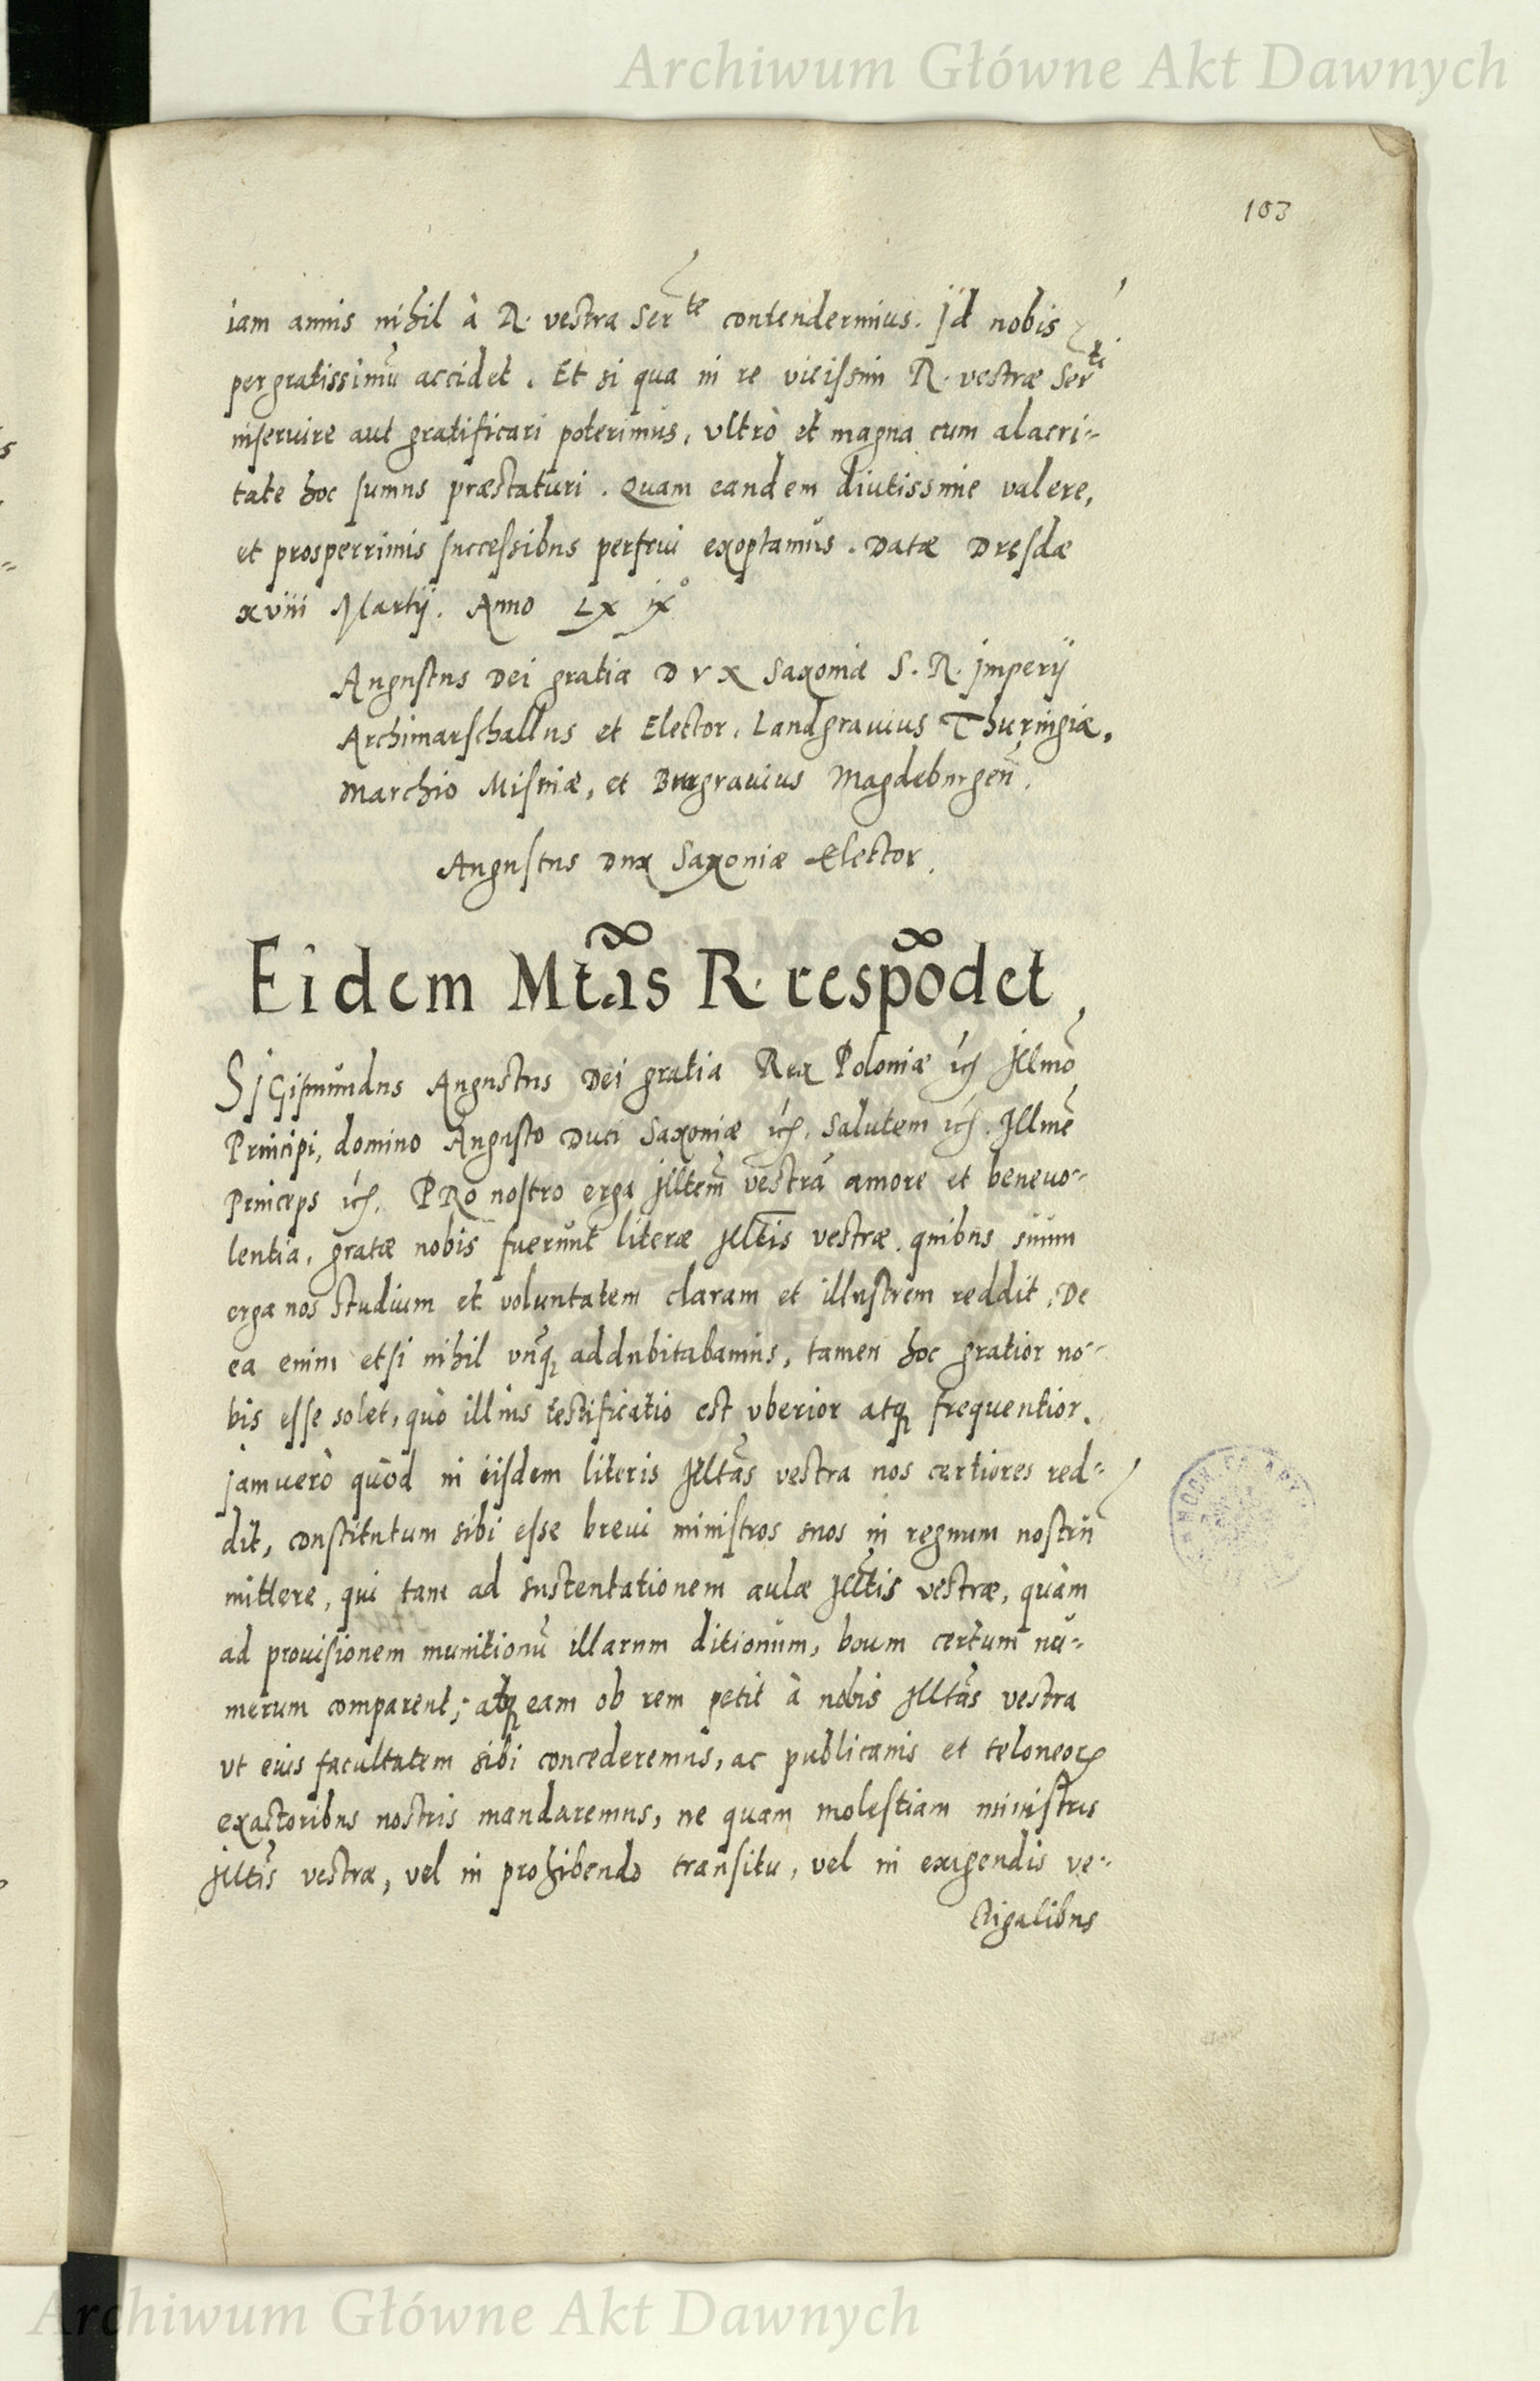 Archiwum Główne Akt Dawnych
103
iam annis nihil à R. vestra Ser^te contenderimus. Id nobis
pergratissimũ accidet. Et si qua in re vicissim R. vestræ Ser^ti
inseruire aut gratificari poterimus, vltrò et magna cum alacri-
tate hoc sumus præstaturi. Quam eandem diutissime valere,
et prosperrimis successibus perfrui exoptamus. Datæ Dresdæ
xviii Martij. Anno LX ix°
Augustus Dei gratia DVX Saxoniæ S. R. Imperij
Archimarschallus et Elector, Landgrauius Thuringiæ,
Marchio Misniæ, et Burgrauius Magdeburgen̄.
Augustus Dux Saxoniæ Elector.
Eidem Mt̃as R. respõdet
SIGismundus Augustus Dei gratia Rex Poloniæ ıc̃ Illmõ
Principi, domino Augusto Duci Saxoniæ ıc̃. Salutem ıc̃. Illmẽ
Princeps ıc̃. PRo nostro erga Illtem̃ vestrã amore et beneuo-
lentia, gratæ nobis fuerunt literæ Illt̃is vestræ. quibus suum
erga nos studium et voluntatem claram et illustrem reddit. De
ea enim etsi nihil vnq̃ addubitabamus, tamen hoc gratior no-
bis esse solet, quò illius testificatio est vberior atq frequentior.
Iamuerò quòd in iisdem literis Illtãs vestra nos certiores red-
dit, constitutum sibi esse breui ministros suos in regnum nostrũ
mittere, qui tam ad sustentationem aulæ Illt̃is vestræ, quàm
ad prouisionem munitionũ illarum ditionum, boum certum nu-
merum comparent; atq eam ob rem petit à nobis Illtãs vestra
vt eius facultatem sibi concederemus, ac publicanis et teloneoꝝ
exactoribus nostris mandaremus, ne quam molestiam ministris
Illt̃is vestræ, vel in prohibendo transitu, vel in exigendis ve-
ctigalibus
Archiwum Główne Akt Dawnych